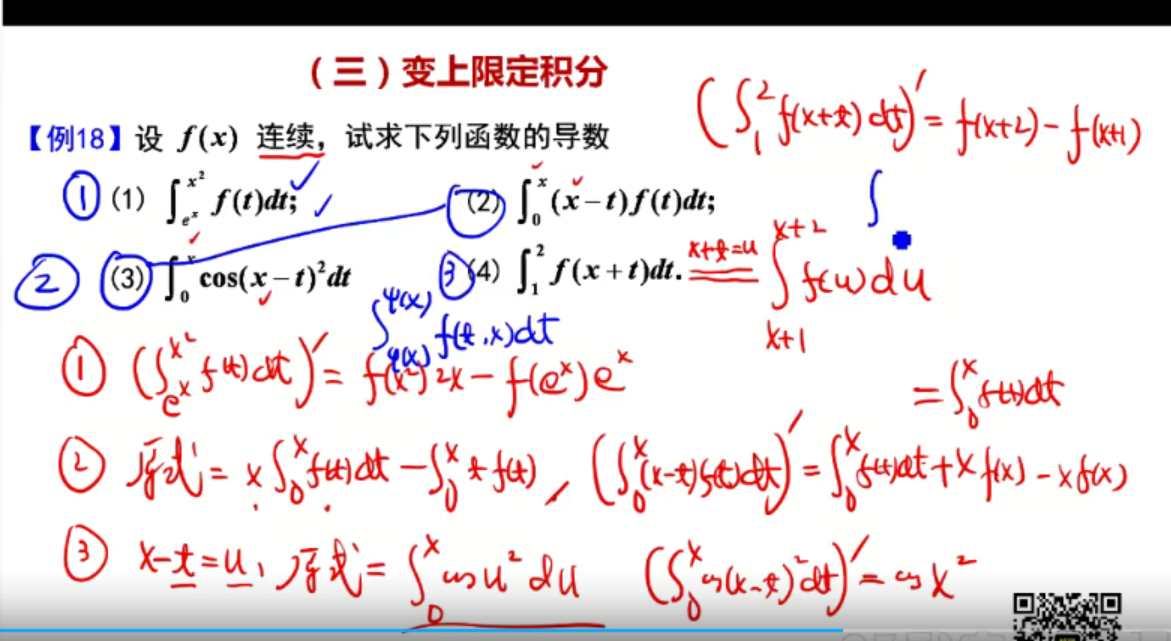 （三）变上限定积分
(∫₁² f(x+t)dt)′ = f(x+2) - f(x+1)
【例18】设 f(x) 连续，试求下列函数的导数
① (1) ∫_{e^x}^{x²} f(t)dt; (2) ∫₀^x (x-t)f(t)dt; ∫
② (3) ∫₀^x cos(x-t)²dt ③ (4) ∫₁² f(x+t)dt. x+t=u ∫_{x+1}^{x+2} f(u)du
∫_{φ(x)}^{ψ(x)} f(t,x)dt
① (∫_{e^x}^{x²} f(t)dt)′ = f(x²)2x - f(e^x)e^x
= ∫₀^x f(t)dt
② 原式 = x∫₀^x f(t)dt - ∫₀^x t f(t), (∫₀^x (x-t)f(t)dt)′ = ∫₀^x f(t)dt + x f(x) - x f(x)
③ x-t=u, 原式 = ∫₀^x cos u² du (∫₀^x cos(x-t)²dt)′ = cos x²